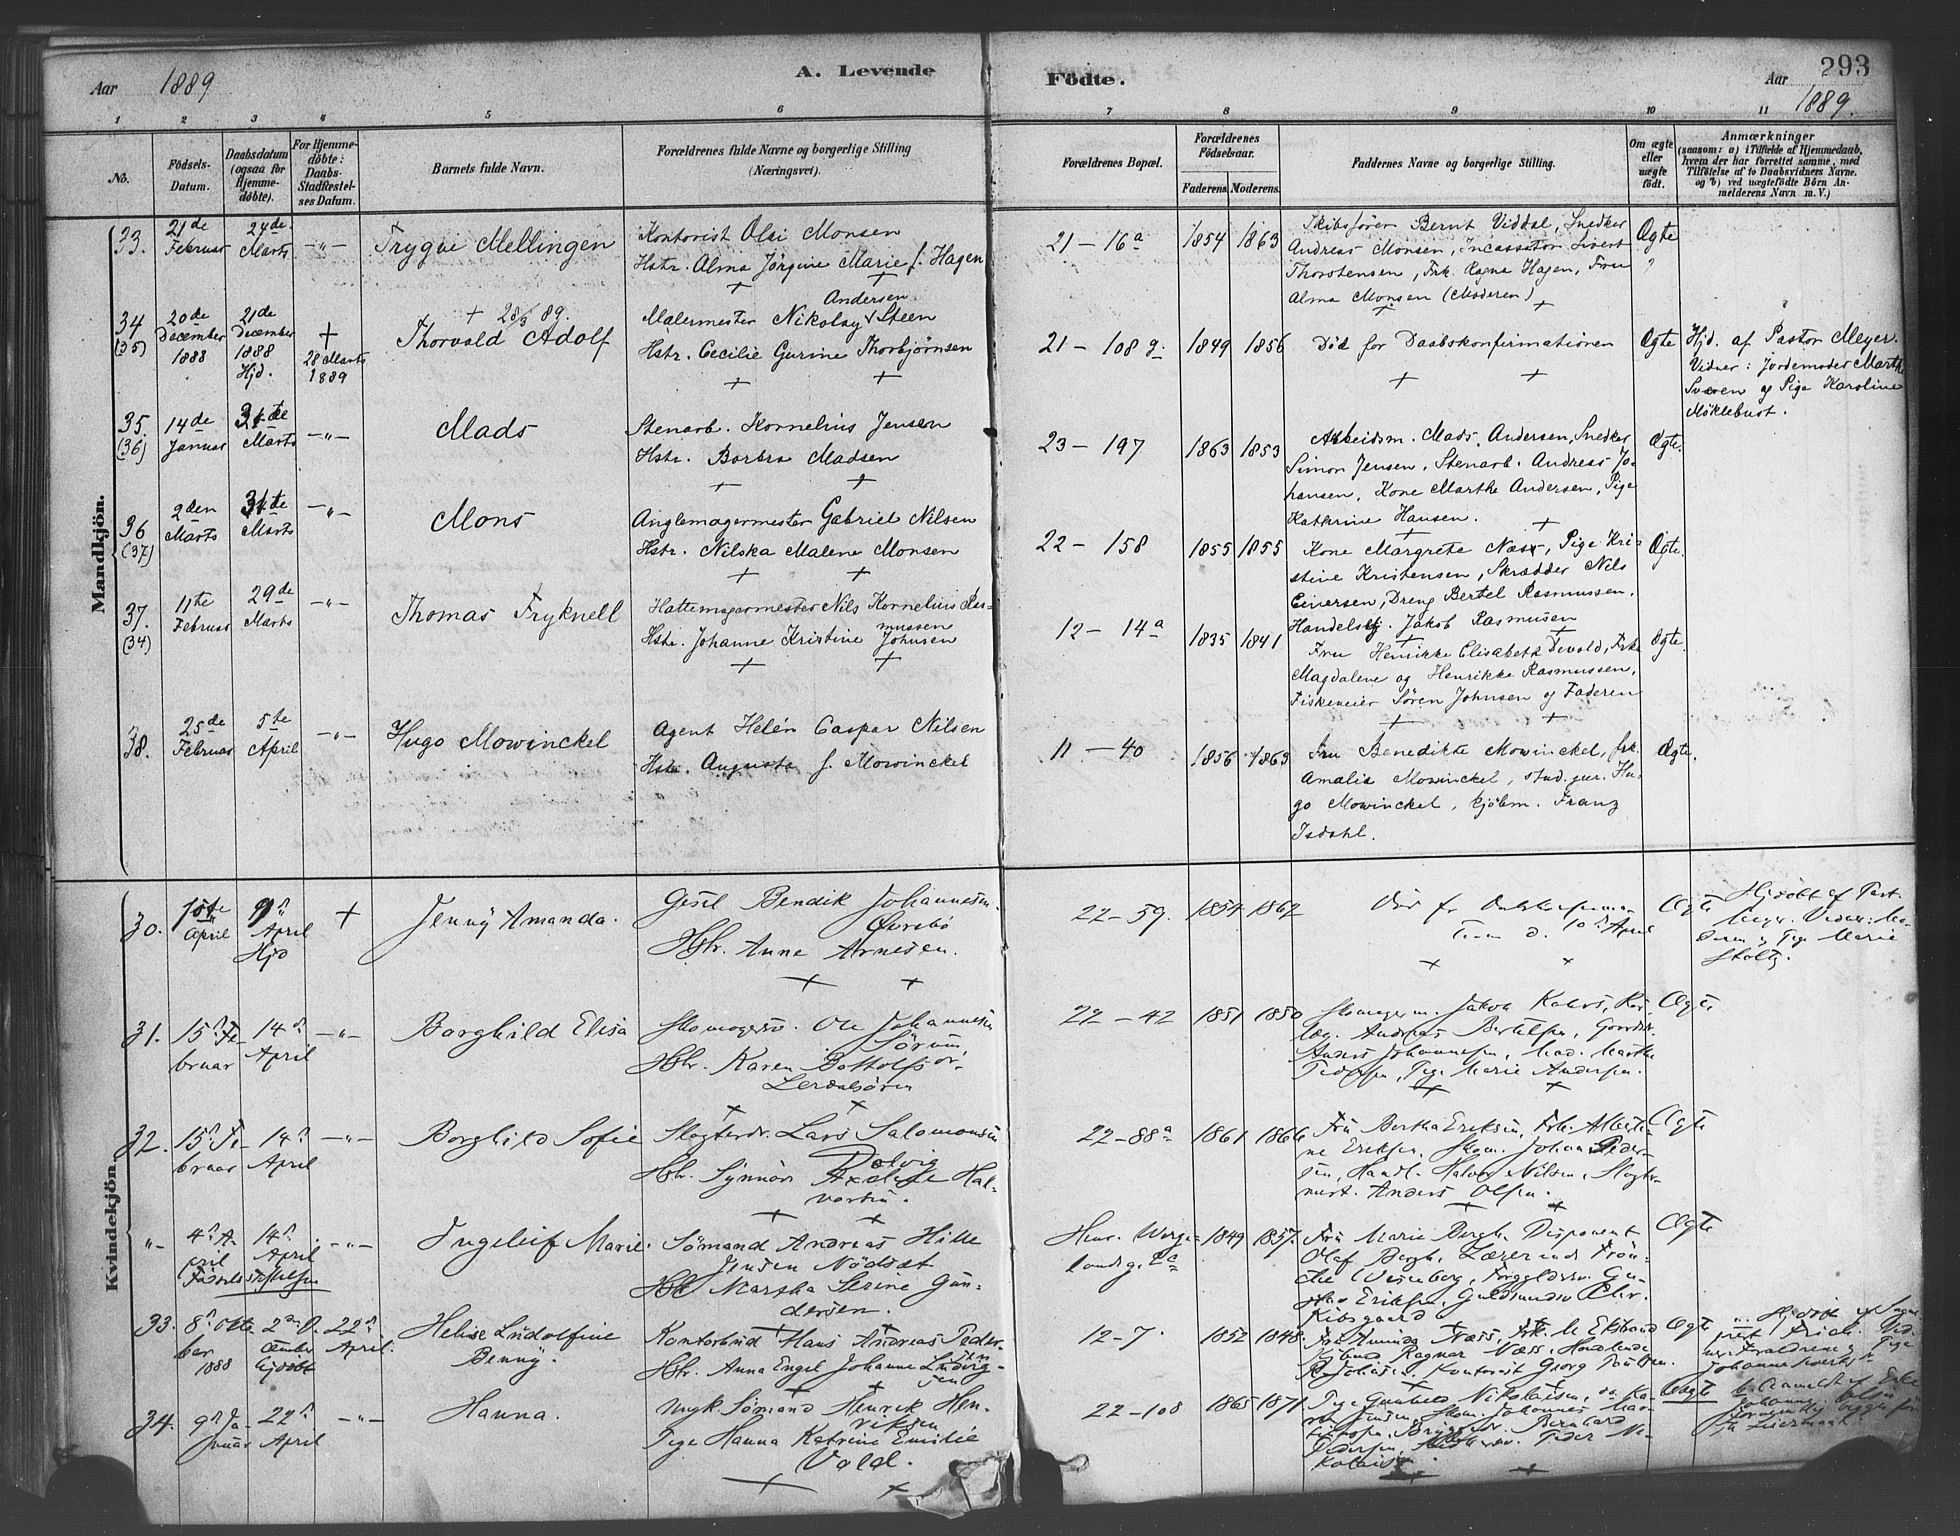 Aar 1889
A. Levende Födte.
Aar 293
1889.
1 2 3 4 5 6 7 8 9 10 11
No.
Födsels-Datum.
Daabsdatum (ogsaa for Hjemme-döbte).
For Hjemme-döbte: Daabs-Stadfæstel-ses Datum.
Barnets fulde Navn.
Forældrenes fulde Navne og borgerlige Stilling (Næringsvei).
Forældrenes Bopæl.
Forældrenes Födselsaar.
Faderens. Moderens.
Faddernes Navne og borgerlige Stilling.
Om ægte eller uægte födt.
Anmærkninger
(saasom: a) i Tilfælde af Hjemmedaab, hvem der har forrettet samme, med Tilföielse af to Daabsvidners Navne. og b) ved uægtefödte Börn An-melderens Navn m. V.)
Mandkjön.
33. 21de Februar 24de Marts -"- Trygve Mellingen
Kontorist Olai Monsen
Hstr. Alma Jörgine Marie f. Hagen
21 - 16a 1854 1863
Skibsförer Bernt Viddal, Snedker
Andreas Monsen, Incassator Sivert
Thorstensen, Frk. Ragna Hagen, Fru
Alma Monsen (Moderen)
Ægte
34 (35) 20de December 1888 21de December 1888 Hjd. + 28 Marts 1889
+ 28/3 89.
Thorvald Adolf
Andersen
Malermester Nikolay Steen
Hstr. Cecilie Gurine Thorbjørnsen
21 - 108 g. 1849 1856
Död før Daabskonfirmationen
Ægte
Hjd. af Pastor Meyer.
Vidner: Jordemoder Marthe
Sværen og Pige Karoline
Møklebust.
35. (36) 14de Januar 31te Marts -"- Mads
Stenarb. Kornelius Jensen
Hstr. Barbra Madsen
23 - 197 1863 1853
Arbeidsm. Mads Andersen, Snedker
Simon Jensen, Stenarb. Andreas Jo-
hansen, Kone Marthe Andersen, Pige
Kathrine Hansen.
Ægte.
36 (37) 2den Marts 31te Marts -"- Mons
Anglemagermester Gabriel Nilsen
Hstr. Nilska Malene Monsen
22 - 158 1855 1855
Kone Margrete Næss, Pige Kri-
stine Kristensen, Skrædder Nils
Eiversen, Dreng Bertel Rasmussen,
Handelsbtj. Jakob Rasmusen
Ægte.
37. (34) 11te Februar 29de Marts -"- Thomas Fryknell
Hattemagermester Nils Kornelius Ras-
mussen
Hstr. Johanne Kristine Johnsen
12 - 14a 1835 1841
Fru Henrikke Elisabeth Devold, Frk.
Magdalene og Henrikke Rasmussen,
Fiskeveier Sören Johnsen og Faderen
Ægte.
38. 25de Februar 5te April -"- Hugo Mowinckel
Agent Helén Caspar Nilsen
Hstr. Augusta f. Mowinckel
11 - 40 1856 1863
Fru Benedikte Mowinckel, frk.
Amalia Mowinckel, stud. jur. Hu-
go Mowinckel, kjöbm. Franz
Isdahl.
Ægte.
Kvindekjön.
30. April 9 April Hjd +
Jenny Amanda.
Gesel Bendik Johannesen
Øvrebö
Hstr. Anne Arnesen.
22-59. 1854 1862
Död før
d. 10 April
Ægte
Hjdöbt af Past.
Meyer. Vidner: Mo-
deren og Pige Marie
Stoltz.
31. 15d Fe-
bruar 14d April -"- Borghild Elisa
Skomagersv. Ole Johannesen
Hstr. Karen Bottolfsdr.
Lerdalsören
22-42 1851 1850
Skomagerm. Jakob
Andreas Bertelsen,
Anders Johannesen, Mad. Marthe
Pedersen, Pige Marie Andersen.
Ægte
32. 15d Fe-
bruar 14d April -"- Borghild Sofie
Slagtersv. Lars Salomonsen
Dalvig
Hstr. Synnöv Axeline Hal-
vorsen.
22-88a 1861 1866
Fru Bertha Eriksen, Frk. Alberti-
ne Eriksen, Skom. Johan Peder-
sen, Handl. Halvor Nilsen, Slagter-
mest. Anders Olsen.
Ægte
"- 4d A-
pril 14d April -"- Ingeleif Marie.
Födselsstiftelsen
Sömand Andreas Hille
Jensen Nödset
Hstr. Martha Serine Gun-
dersen.
Henr. Werge-
landsg. 2a 1849 1857.
Fru Marie Bergh, Disponent
Olaf Bergh, Lærerinde
Wesenberg, Gu-
Eriksen, Guldsmedsv
Kibsgaard
Ægte
33. 8d Okto-
ber 1888 2den
cember Hjdöbt 22d April.
Helise Ludolfine
Benny.
Kontorbud Hans Andreas Peder-
sen
Hstr. Anna Engel Johanne Ludvig-
sen
12-7. 1852 1848.
Fru Amunda Næss, Frk. M. Eksund
Ragnar Næss,
Johnsen, Kontorist Georg Poulsen.
Ægte
Hjdöbt af
prest Erich. Vid-
ner: Forældrene og Pige
Johanne
34. 9d Ja-
nuar 22d April -"- Hanna.
Ungk. Sömand Henrik Hen-
riksen
Pige Hanna Katrine Emilie
Vold.
22-108 1865 1871
Pige Gunhild Nikolaisen, do. Ka-
Jensen, Skom. Johannes
Bernhard
Pedersen, Peder Ni-
kolaisen
Uægte
b. Anmeldt af Enke
Johanne Olsen